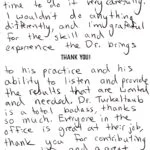 time to do it very carefully.
I wouldn't do anything
differently, and I'm grateful
for the skill and
experience the Dr. brings
THANK YOU!
to his practice and his
ability to listen and provide
the results that are wanted
and needed. Dr. Turkeltaub
is a total badass, thanks
so much. Everyone in the
office is great at their job,
thank you for contributing
and a great